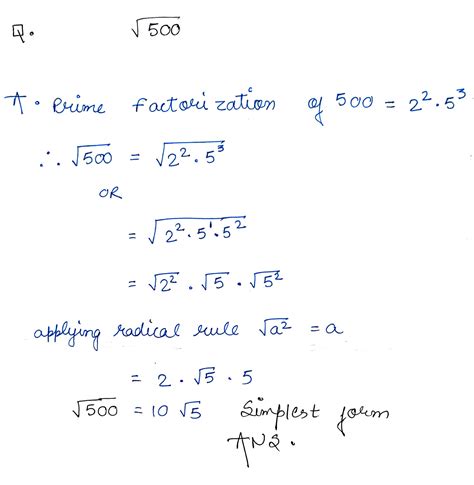 Q. √500
A. Prime factorization of 500 = 2² · 5³
∴ √500 = √2² · 5³
OR
= √2² · 5¹ · 5²
= √2² · √5 · √5²
applying radical rule √a² = a
= 2 · √5 · 5
√500 = 10 √5 Simplest form
ANS.